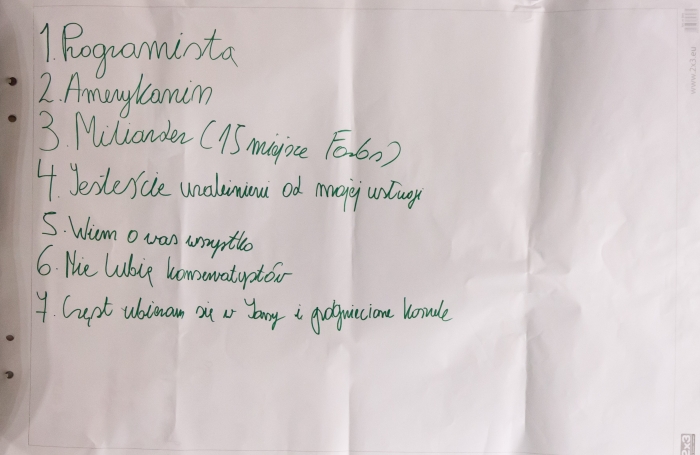 1. Programista
2. Amerykanin
3. Miliarder (15 miejsce Forbs)
4. Jesteście uzależnieni od mojej usługi
5. Wiem o was wszystko
6. Nie lubię konserwatystów
7. Częst ubieram się w Jansy i pogniecione koszule
www.2x3.eu
2x3